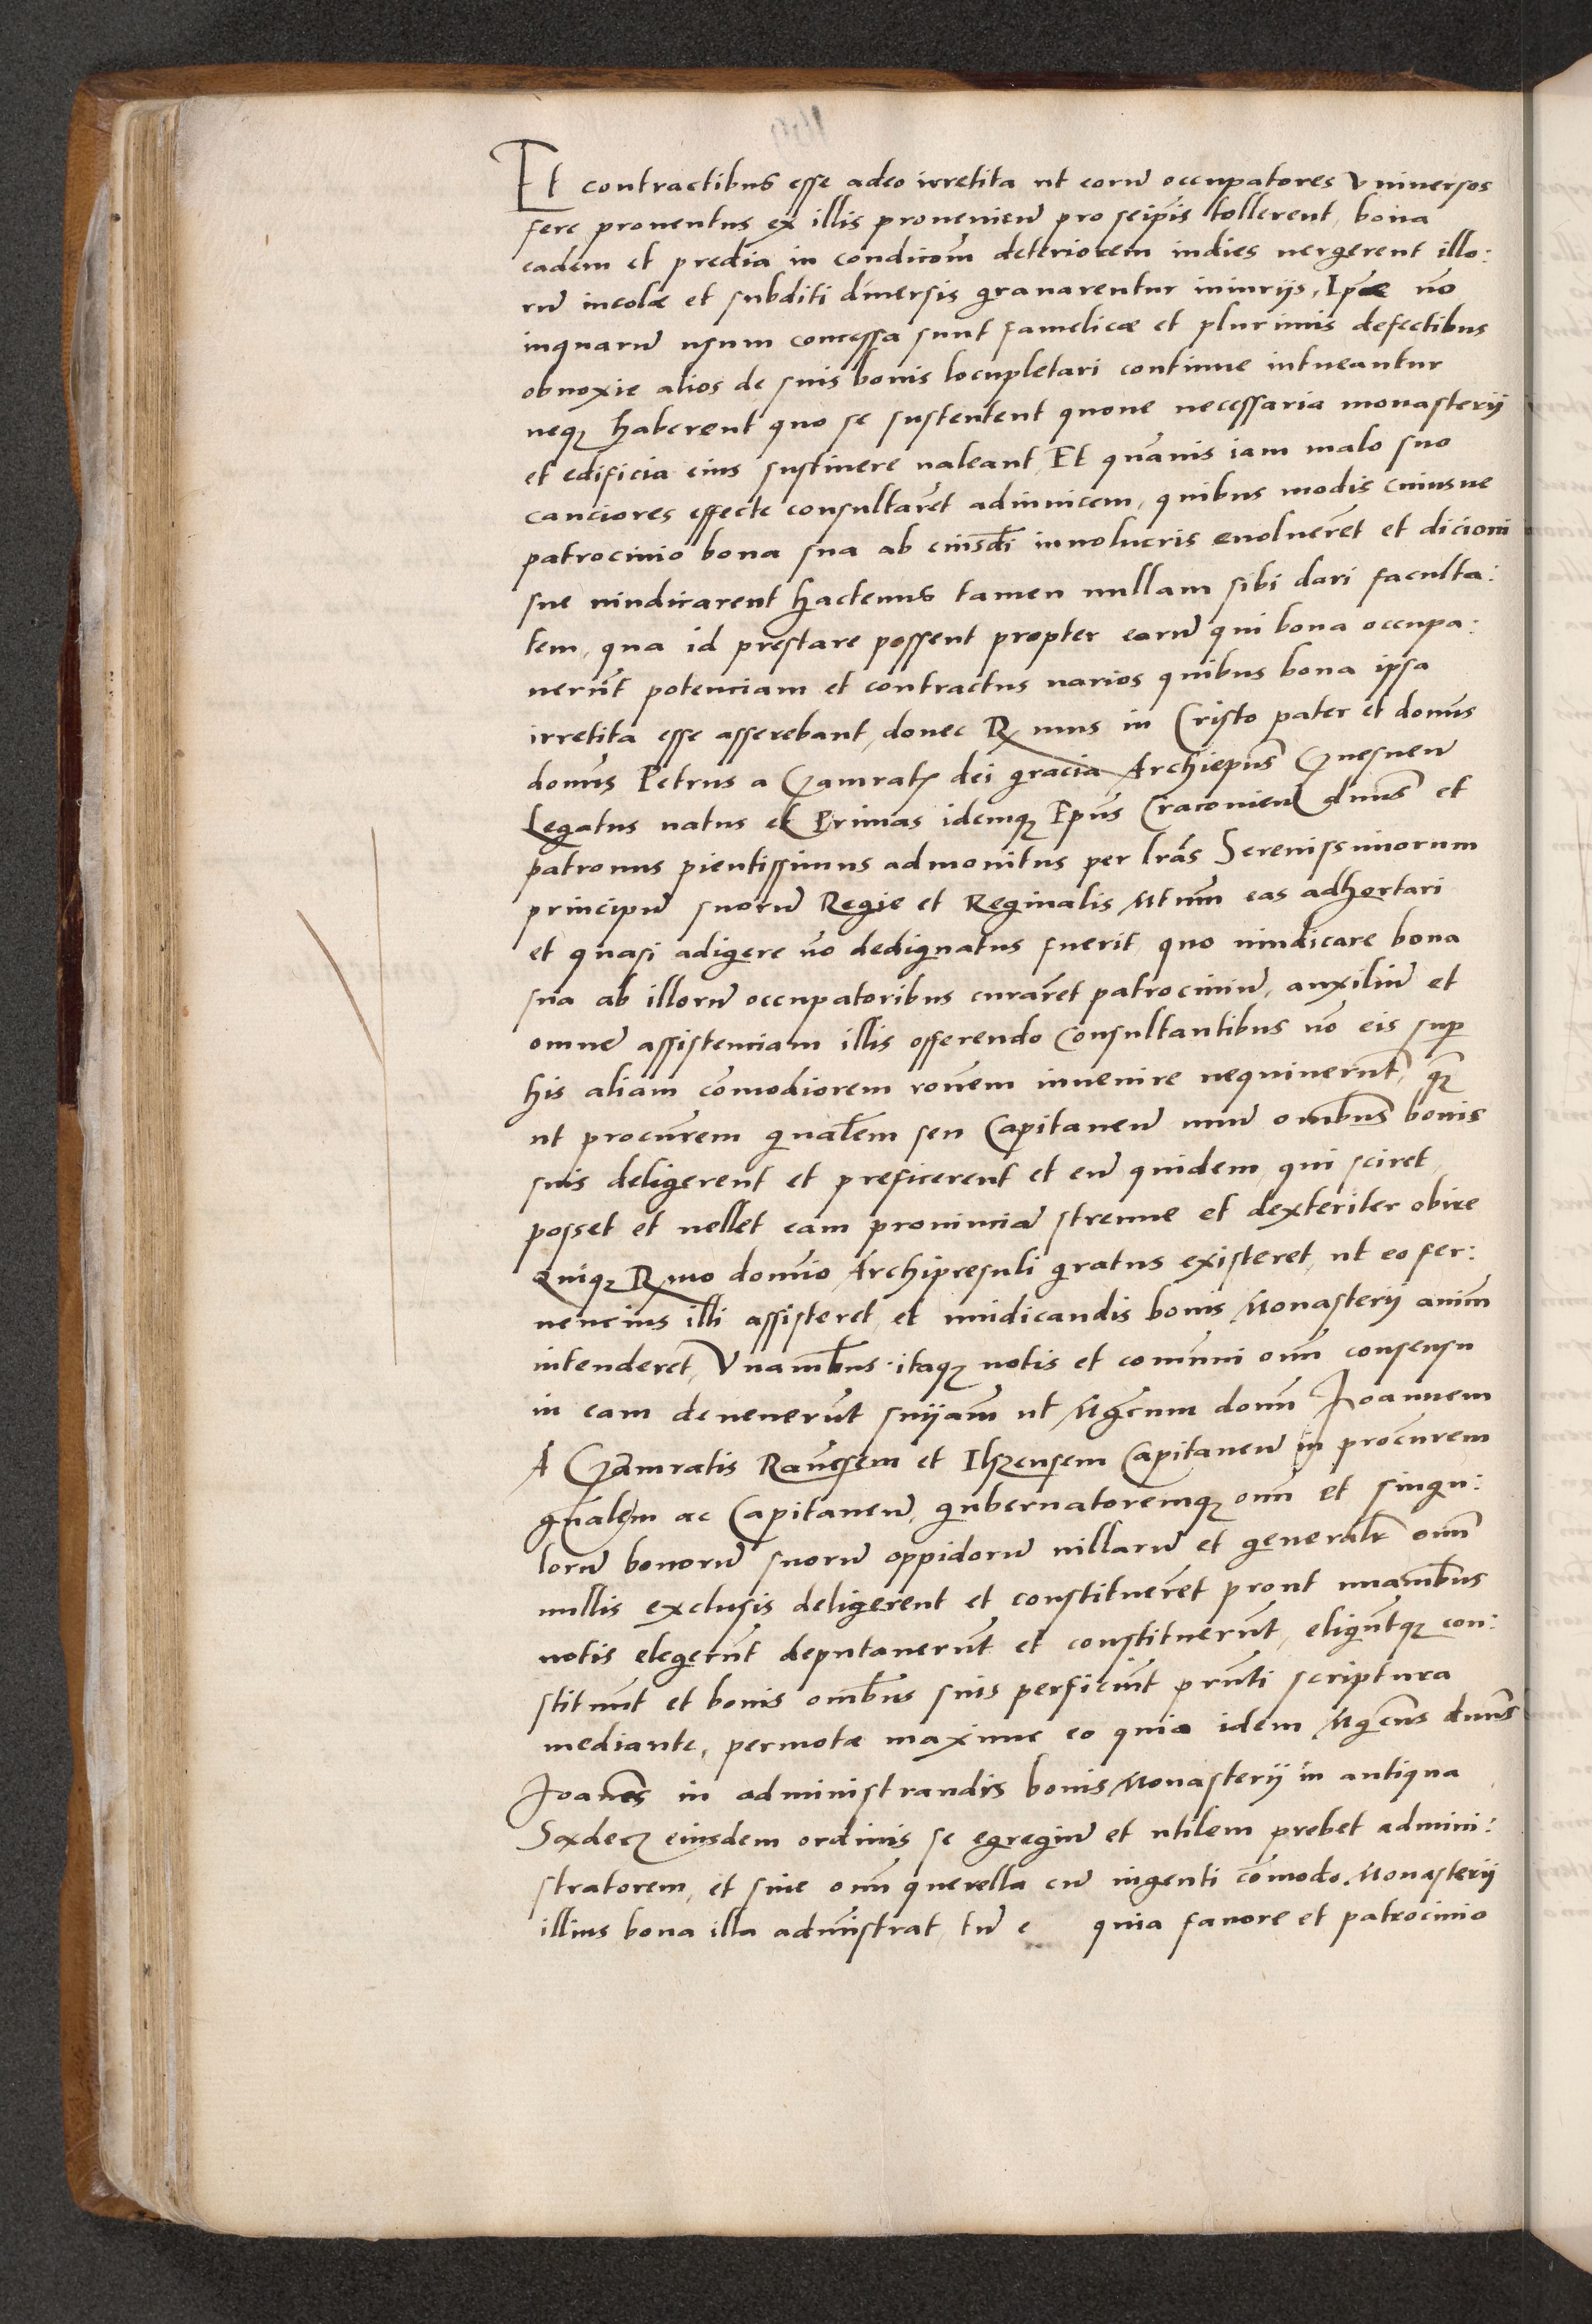 Et contractibus esse adeo irretita ut eorū occupatores Vniuersos
fere prouentus ex illis prouenieñ pro seip̄is tollerent, bona
eadem et predia in condicōm deteriorem indies vergerent illo:
rū incolæ et subditi diuersis grauarentur iniurijs, Ip̄æ vō
inquarū usum concessa sunt famelicæ et plurimis defectibus
obnoxie alios de suis bonis locupletari continue intueantur
neqꝫ haberent quo se sustentent quoue necessaria monasterij
et edificia eius sustinere ualeant, Et quāuis iam malo suo
cauciores effecte consultarēt adinuicem, quibus modis cuiusue
patrocinio bona sua ab eiusdī inuolucris euoluerēt et dicioni
sue uindicarent hactenus tamen nullam sibi dari faculta:
tem, qua id prestare possent propter earū qui bona occupa:
uerūt potenciam et contractus uarios quibus bona ipsa
irretita esse asserebant, donec R mus in Cristo pater et domūs
domūs Petrus a Gamratҙ dei gracia Archiep̄us Gnesneñ
Legatus natus et Primas idemqꝫ Ep̄us Cracovieñ dnus̄ et
patronus pientissimus admonitus per lrās Serenissimorum
principū suorū Regie et Reginalis Mtum̄ eas adhortari
et quasi adigere nō dedignatus fuerit quo uindicare bona
sua ab illorū occupatoribus curarēt patrociniū, auxiliū et
omnē assistenciam illis offerendo Consultantibus vō eis sup
his aliam cōmodiorem rōnem inuenire nequiuerūt, qꝫ
ut procūrem gnalēm seu Capitaneū unū ombus̄ bonis
suis deligerent et preficerent et eū quidem, qui sciret
posset et uellet eam prouinciā strenue et dexteriter obire
Quiqꝫ R mo domīo Archipresuli gratus existeret, ut eo fer:
uencius illi assisteret, et uindicandis bonis Monasterij anim̄
intenderet, Vnambus̄ itaqꝫ uotis et comuni om̄ consensu
in eam deuenerūt snījam ut Mgcūm dom̄ Ioannem
A Gamratis Rauēsem et Ilzensem Capitaneū in procūrem
gnalēm ac Capitaneū, gubernatoremqꝫ om̄ et singu:
lorū bonorū suorū oppidorū uillarū et generalr̄ om̄
nullis exclusis deligerent et constituerēt prout unambus̄
uotis elegerūt deputauerūt et constituerūt, eligūtqꝫ con:
stituūt et bonis ombus̄ suis perficiūt prn̄ti scriptura
mediante, permotæ maxime eo quia idem Mgcūs dnus̄
Ioanēs in administrandis bonis Monasterij in antiqua
Sandecҙ eiusdem ordinis se egregiū et utilem prebet admini:
stratorem, et sine om̄ querella cū ingenti cōmodo Monasterij
illius bona illa admīstrat, tū e quia fauore et patrocinio